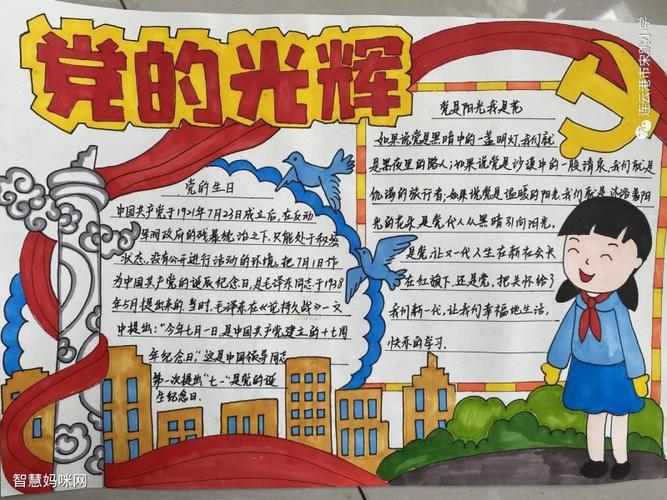 党的光辉
党的生日
中国共产党于1921年7月23日成立后,在反动
政府的残暴统治之下,只能处于秘密
状态,没有公开进行活动的环境,把7月1日作
为中国共产党的诞辰纪念日,是毛泽东同志于1938
年5月提出来的.当时,毛泽东在《论持久战》一文
中提出:"今年七月一日,是中国共产党建立的十七周
年纪念日",这是中国领导同志
第一次提出"七一"是党的诞
生纪念日.
党是阳光我是花
如果说党是黑暗中的一盏明灯,我们就
是黑夜里的路人;如果说党是沙漠中的一股清泉,我们就是
饥渴的旅行者;如果说党是温暖的阳光,我们就是沐浴着阳
光的花朵.是党,代人从黑暗引向阳光,
是党,让一代人生在新在长
在红旗下,还是党,把关怀给了
我们新一代,让我们幸福地生活,
快乐的学习.
连云港市宋跳小学
智慧妈咪网